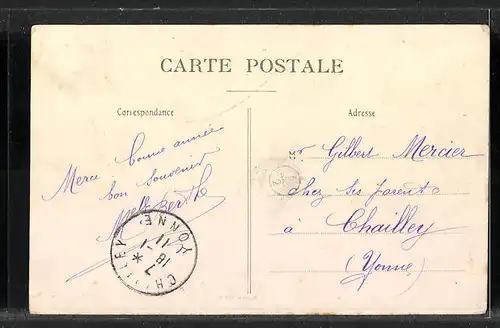 CARTE POSTALE
Correspondance
Adresse
Merci bonne année
bon souvenir
Melle Berthe
Mr Gilbert Mercier
Chez ses parents
à Chailley
(Yonne)
CHAILLEY
YONNE
7
18 - 1
11